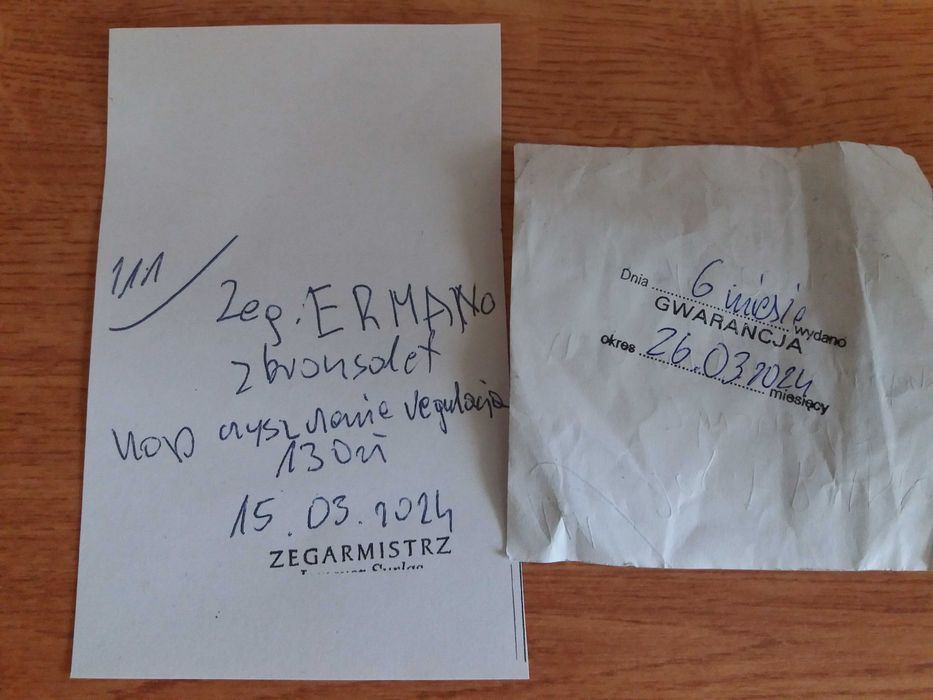 111
Zeg. ERMANO
z bransolet
nap czyszczenie regulacja
130zł
15.03.2024
ZEGARMISTRZ
Dnia 6 miesię wydano
GWARANCJA
okres 26.03 2024 miesięcy